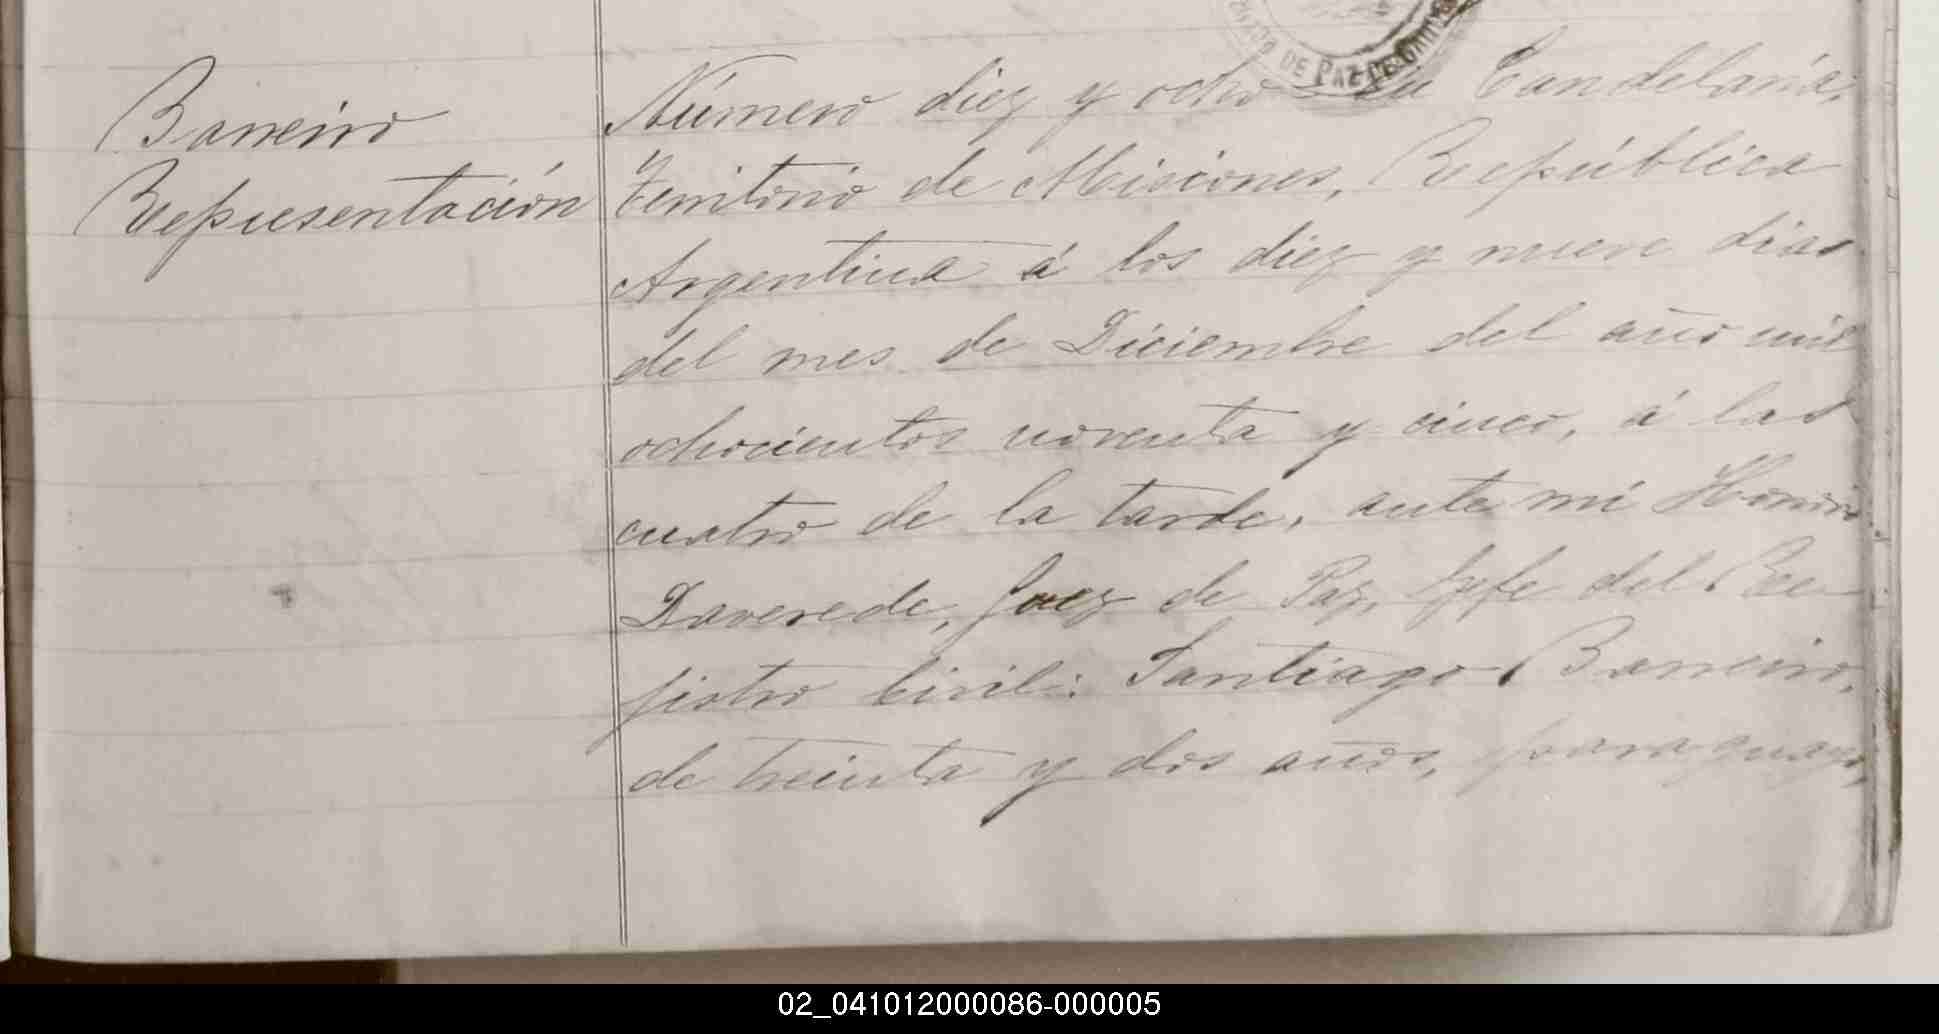 DE PAZ DE
Barreiro
Representación
Número diez y ocho En Candelaria,
Territorio de Misiones, República
Argentina á los diez y nueve dias
del mes de Diciembre del año mil
ochocientos noventa y cinco, á las
cuatro de la tarde, ante mi Honorio
Daverede, Juez de Paz, Jefe del Re-
jistro Civil: Santiago Barreiro,
de treinta y dos años, paraguayo,
02_041012000086-000005